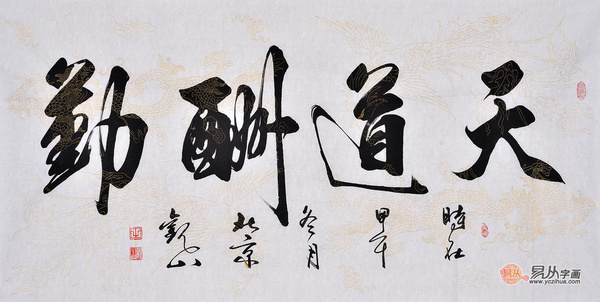 天道酬勤
時在
甲午
冬月
北京
觀山
易从
易从字画
www.yczihua.com